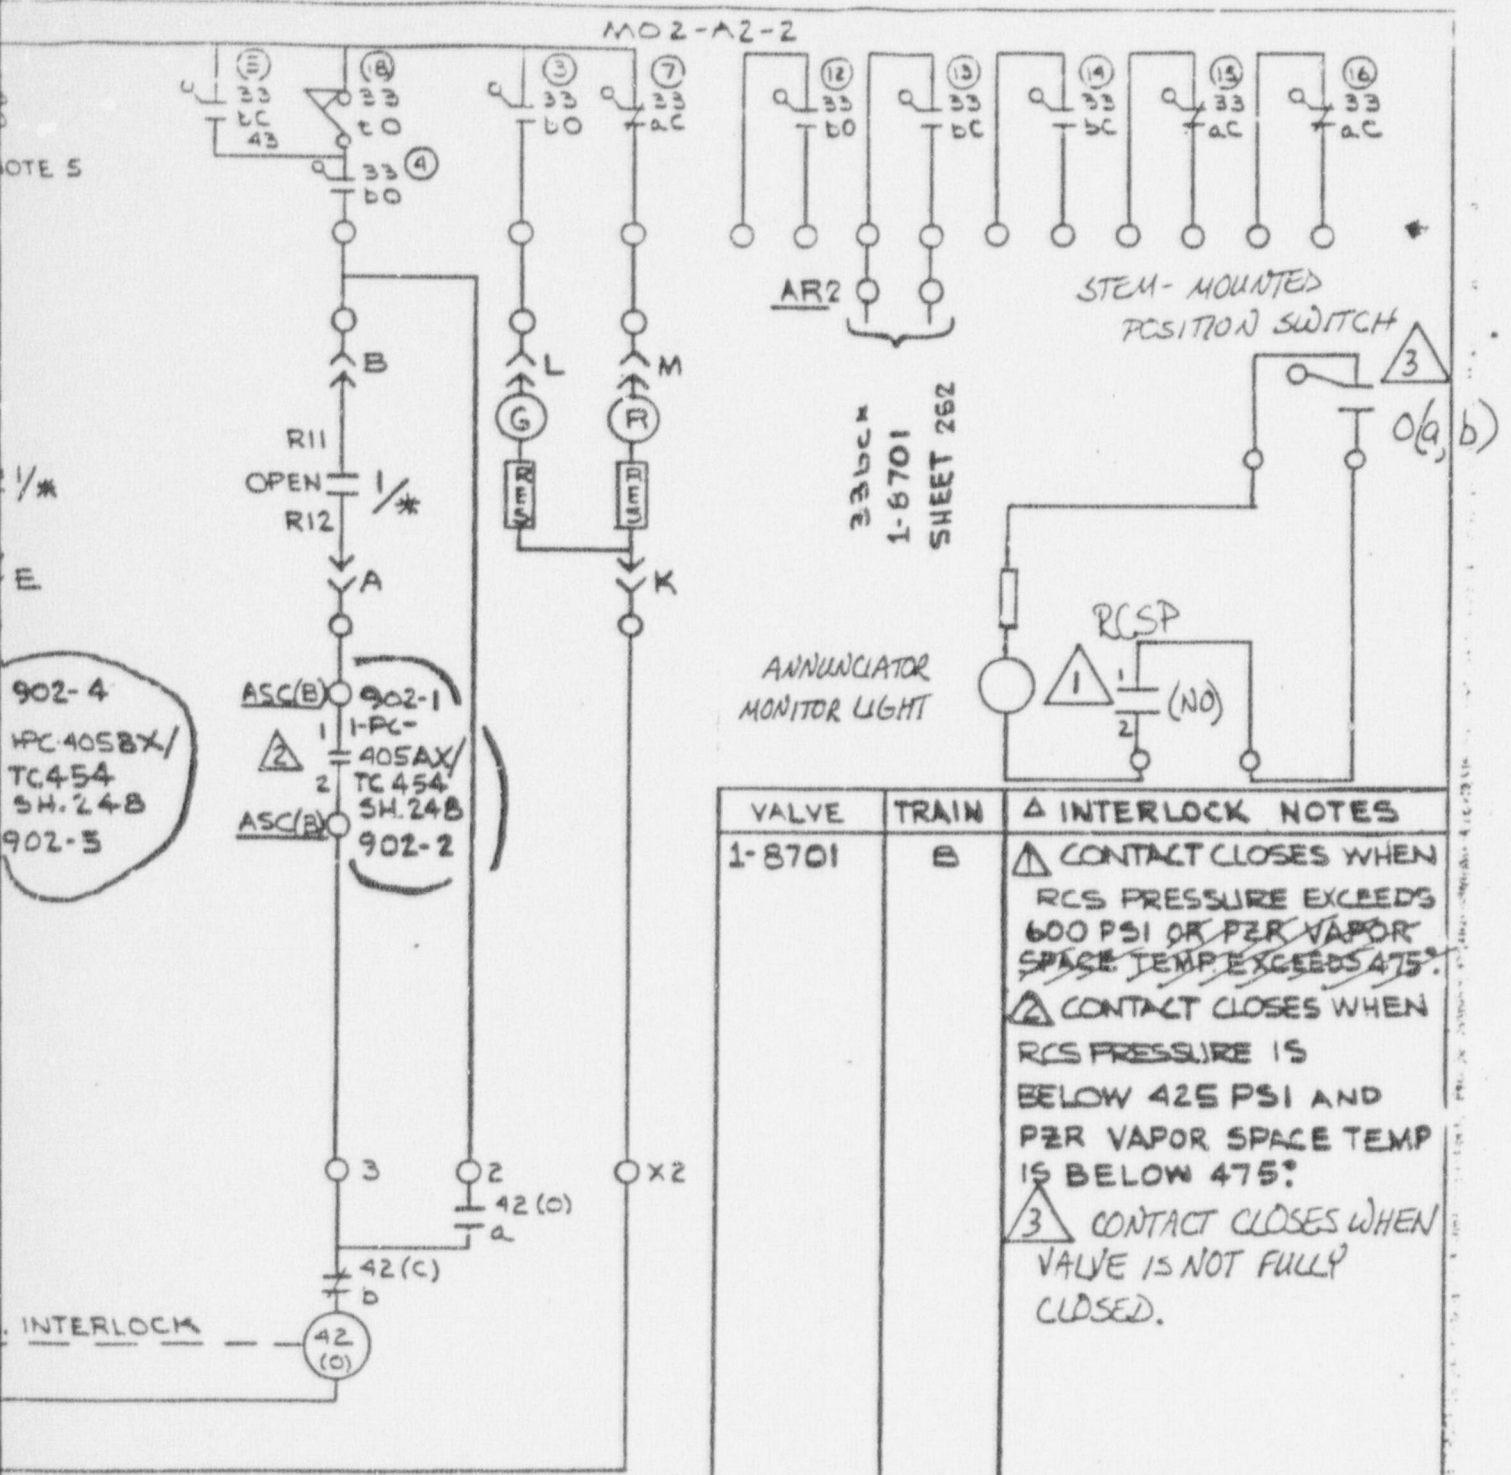 MO2-A2-2
33
bC
43
18
33
tO
4
33
bO
3
33
bO
7
33
aC
12
33
bO
13
33
bC
14
33
bC
15
33
aC
16
33
aC
OTE 5
AR2
STEM-MOUNTED
POSITION SWITCH
3
O(a, b)
B
L
M
G
R
R11
OPEN
1/*
R12
RES
RES
1/*
E
A
K
33bc*
1-8701
SHEET 262
RCSP
ANNUNCIATOR
MONITOR LIGHT
1
1
2
(NO)
902-4
1-PC-405BX/
TC454
SH.248
902-5
ASC(B)
902-1
1
1-PC-
2
405AX/
2
TC454
SH.248
ASC(B)
902-2
3
2
X2
42(O)
a
42(C)
b
. INTERLOCK
42
(O)
VALVE
TRAIN
Δ INTERLOCK NOTES
1-8701
B
1 CONTACT CLOSES WHEN
RCS PRESSURE EXCEEDS
600 PSI OR PZR VAPOR
SPACE TEMP. EXCEEDS 475°.
2 CONTACT CLOSES WHEN
RCS PRESSURE IS
BELOW 425 PSI AND
PZR VAPOR SPACE TEMP
IS BELOW 475°.
3 CONTACT CLOSES WHEN
VALVE IS NOT FULLY
CLOSED.